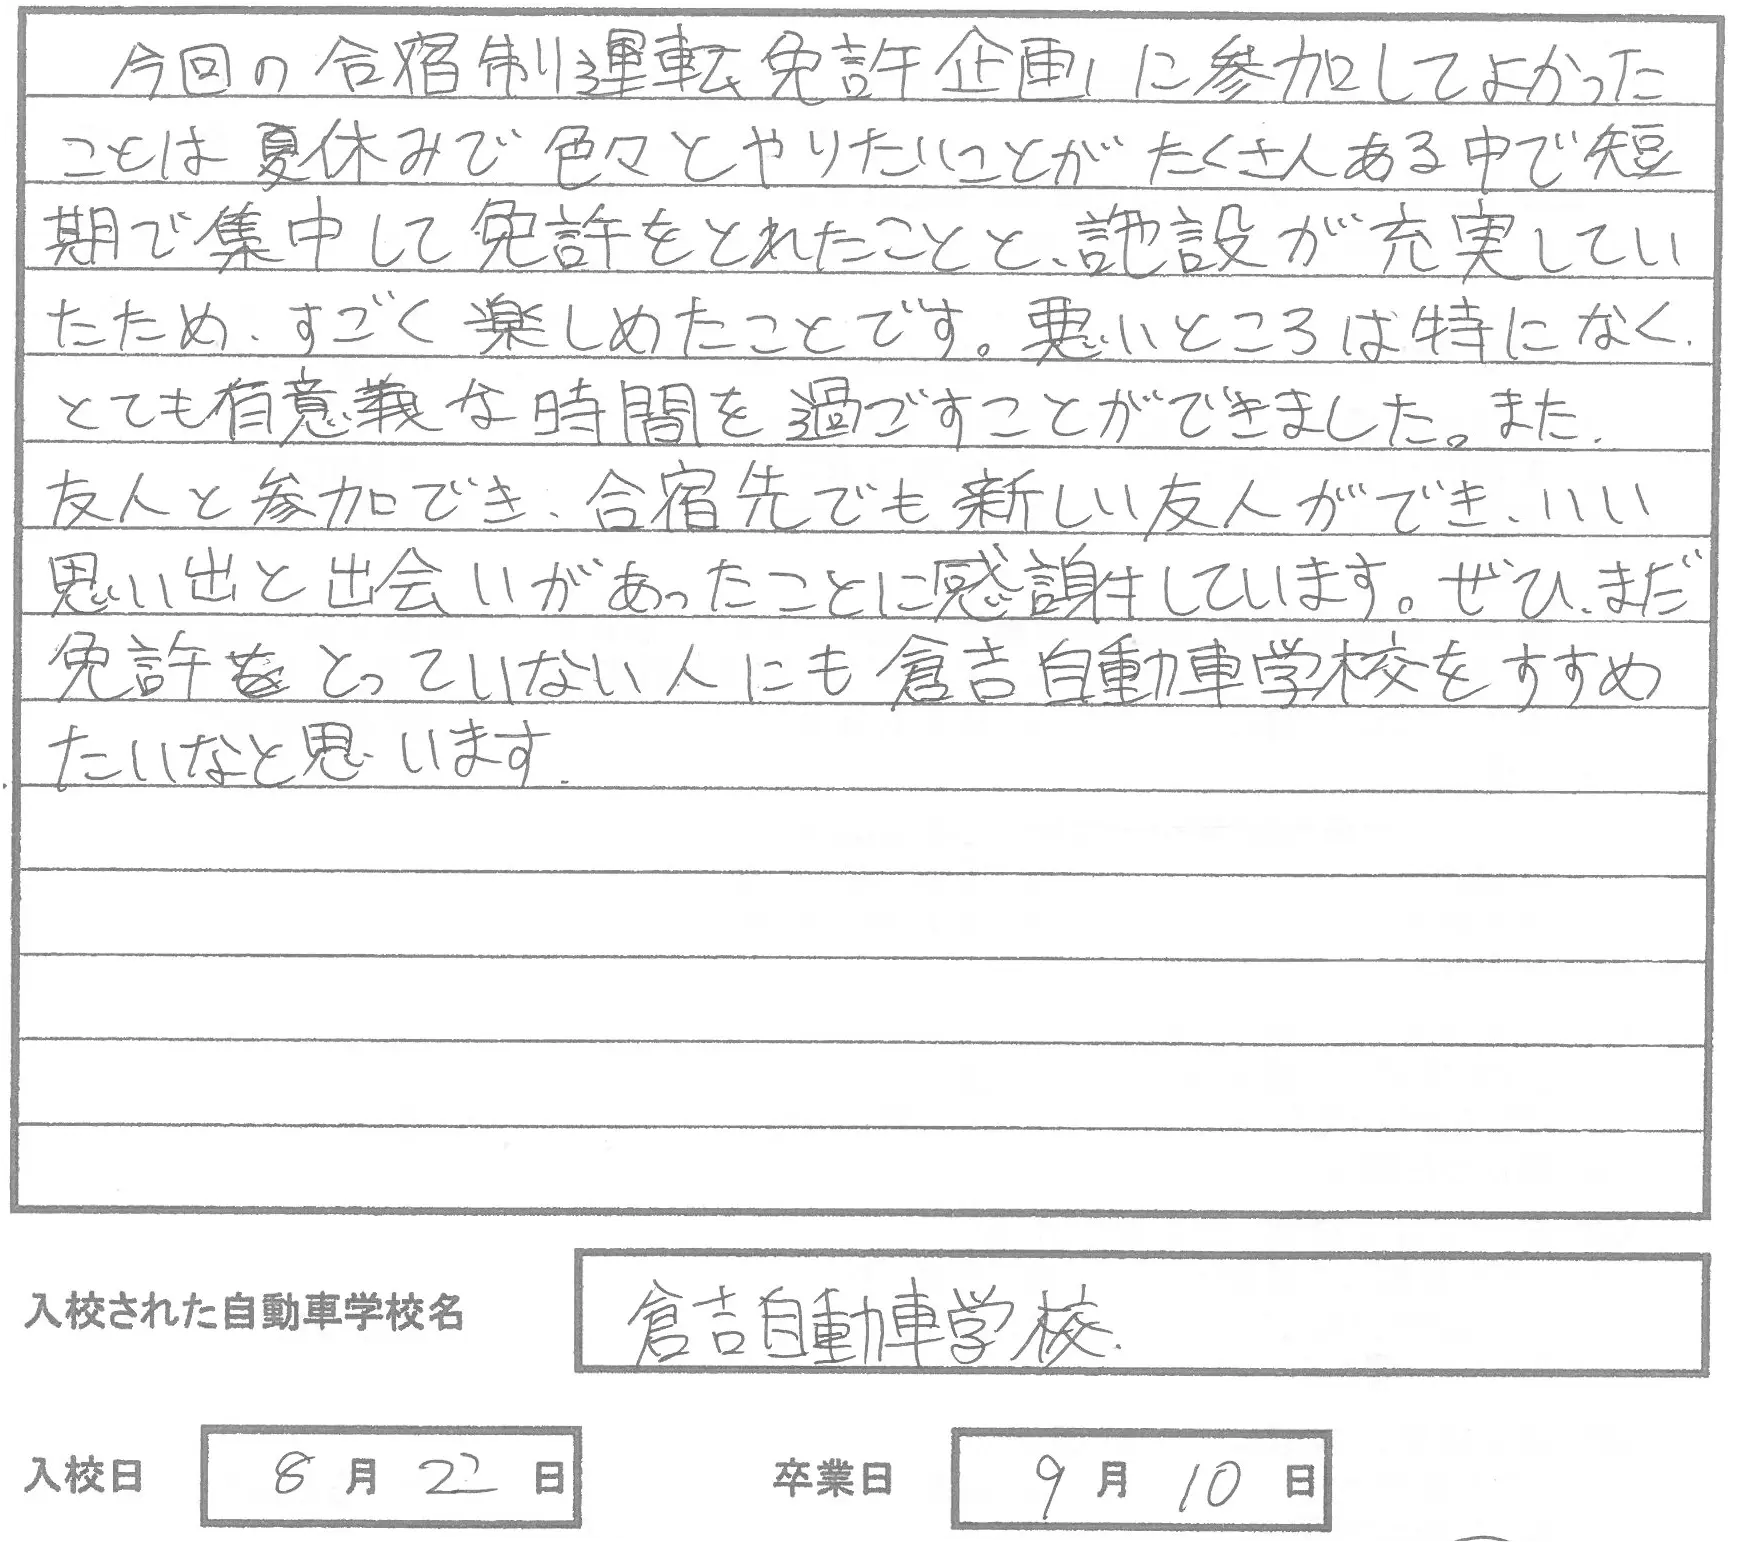 今回の合宿制運転免許企画に参加してよかった
ことは夏休みで色々とやりたいことがたくさんある中で短
期で集中して免許をとれたことと、施設が充実してい
たため、すごく楽しめたことです。悪いところは特になく、
とても有意義な時間を過ごすことができました。また、
友人と参加でき、合宿先でも新しい友人ができ、いい
思い出と出会いがあったことに感謝しています。ぜひ、まだ
免許をとっていない人にも倉吉自動車学校をすすめ
たいなと思います.
入校された自動車学校名 倉吉自動車学校.
入校日 8月22日 卒業日 9月10日